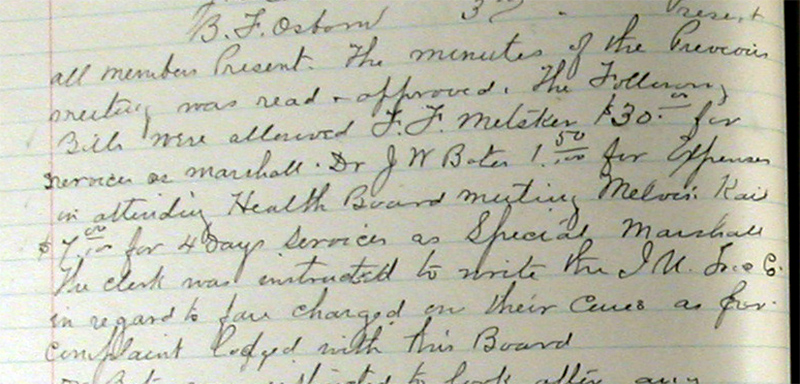 B. F. Osborn 3rd Present
all members Present. The minutes of the Previous
meeting was read + approved. The Following
Bills were allowed F. F. Metsker $30.00 for
services as marshall. Dr J W Bates 1.50 for Expenses
in attending Health Board meeting Melvin
$7.00 for 4 Days services as Special Marshall
The clerk was instructed to write the I U. Co.
in regard to fare charged on their Cars as for
complaint lodged with this Board
to look after any